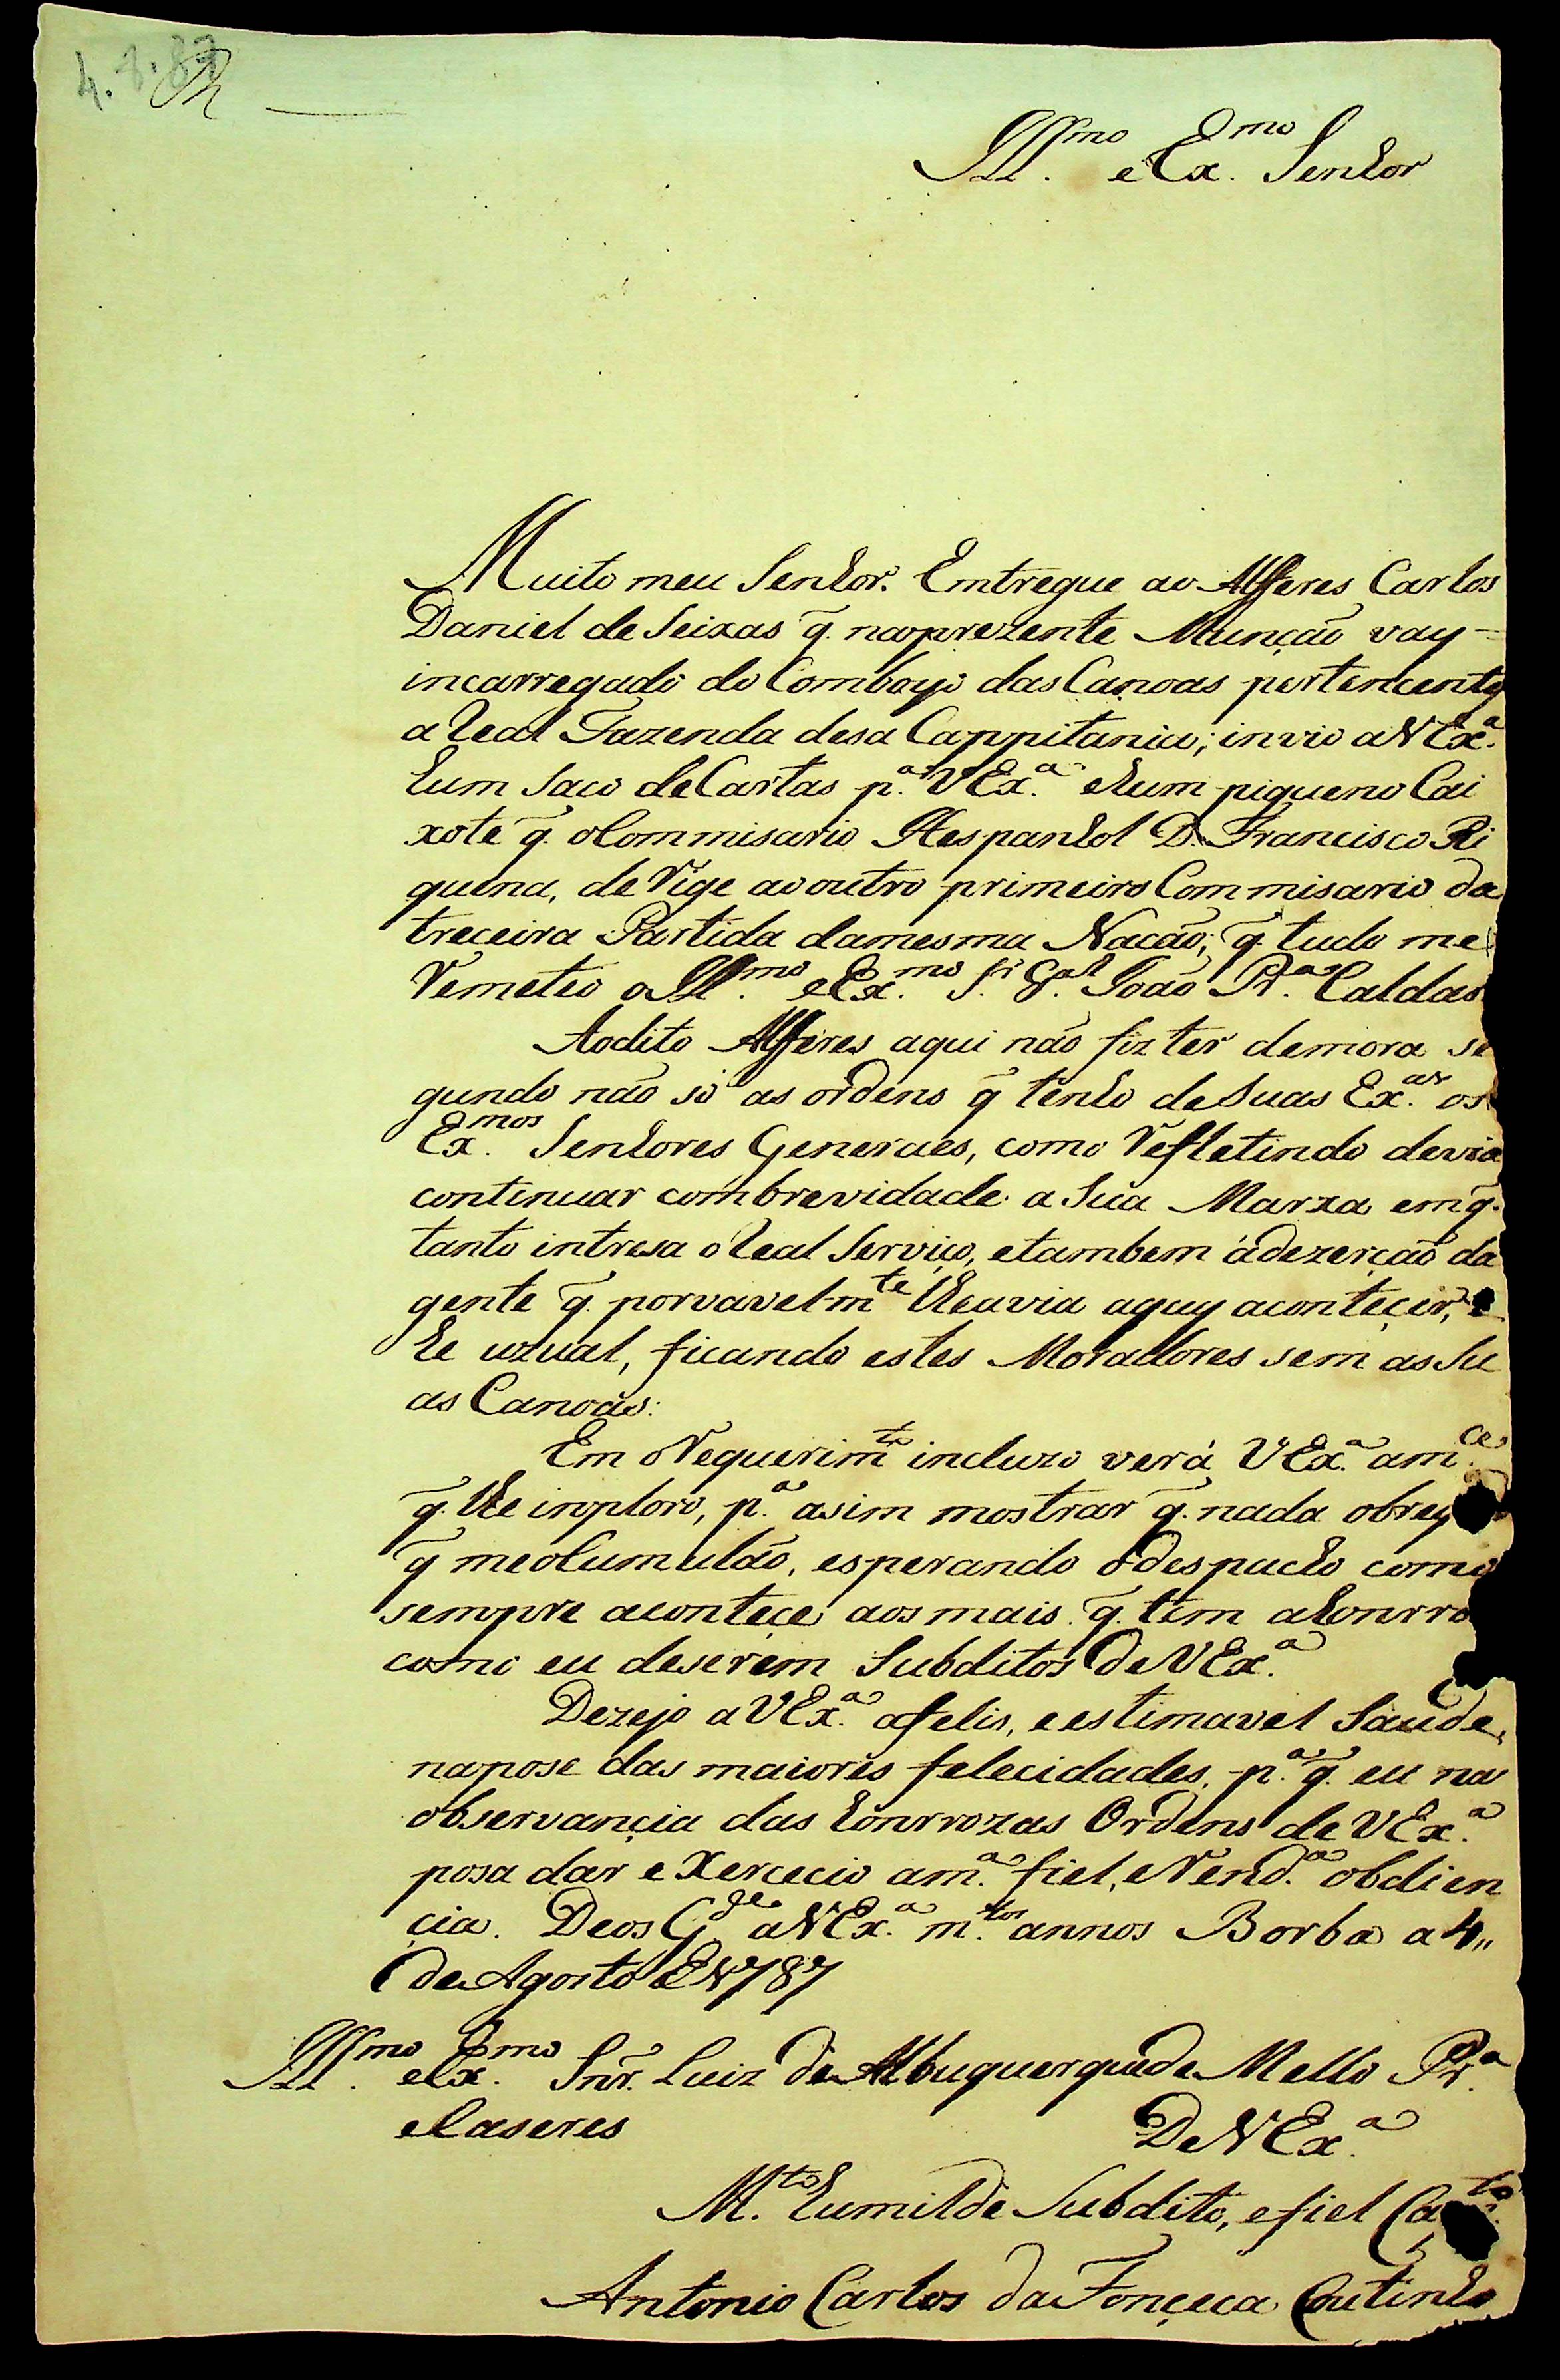 4.8.87
Ill.mo e Ex.mo Senhor
Muito meu Senhor. Emtregue ao Alferes Carlos
Daniel de Seixas q̃. na prezente Munção vay=
incarregado do Comboyo das Canoas pertencentes
a Real Fazenda desa Cappitania; invio a V Ex.ª
hum saco de Cartas p.ª V Ex.ª e hum piqueno Cai
xote q̃. o Commisario Hespanhol D. Francisco Ri
quena, derige ao outro primeiro Commisario da
treceira Partida da mesma Nacão; q̃ tudo me
remeteo o Ill.mo e Ex.mo S.r G.al João Pr.ª Caldas
Ao dito Alferes aqui não fiz ter demora se
gundo não só as ordens q̃ tenho de Suas Ex.as os
Ex.mos Senhores Generaes, como refletindo devia
continuar com brevidade a Sua Marxa em q̃.
tanto intresa o Real Serviço, e tambem á dezerção da
gente q̃. porvavelm.te lhe avia aquy aconteçer,
he uzual, ficando estes Moradores sem as Su
as Canoas:
Em o Requerim.to incluzo verá V Ex.ª a m.ce
q̃. lhe inploro, p.ª asim mostrar q̃. nada obrey
q̃ me o cumulão, esperando o despacho como
sempre aconteçe aos mais q̃. tem a honrra
como eu de serem Subditos de V Ex.ª
Dezejo a V Ex.ª a felis, e estimavel Saude,
na pose das maiores felecidades, p.ª q̃. eu na
observançia das honrrozas Ordens de V Ex.ª
posa dar eXercecio a m.ª fiel, e Rend.ª obdien
çia. Deos G.de a V Ex.ª m.tos annos Borba a 4,,
de Agosto de 1787
Ill.mo e Ex.mo Snr̃. Luiz de Albuquerque de Mello Pr.ª
e Caseres
De V Ex.ª
M.to humilde Subdito, e fiel
Antonio Carlos da Fonçeca Coutinho